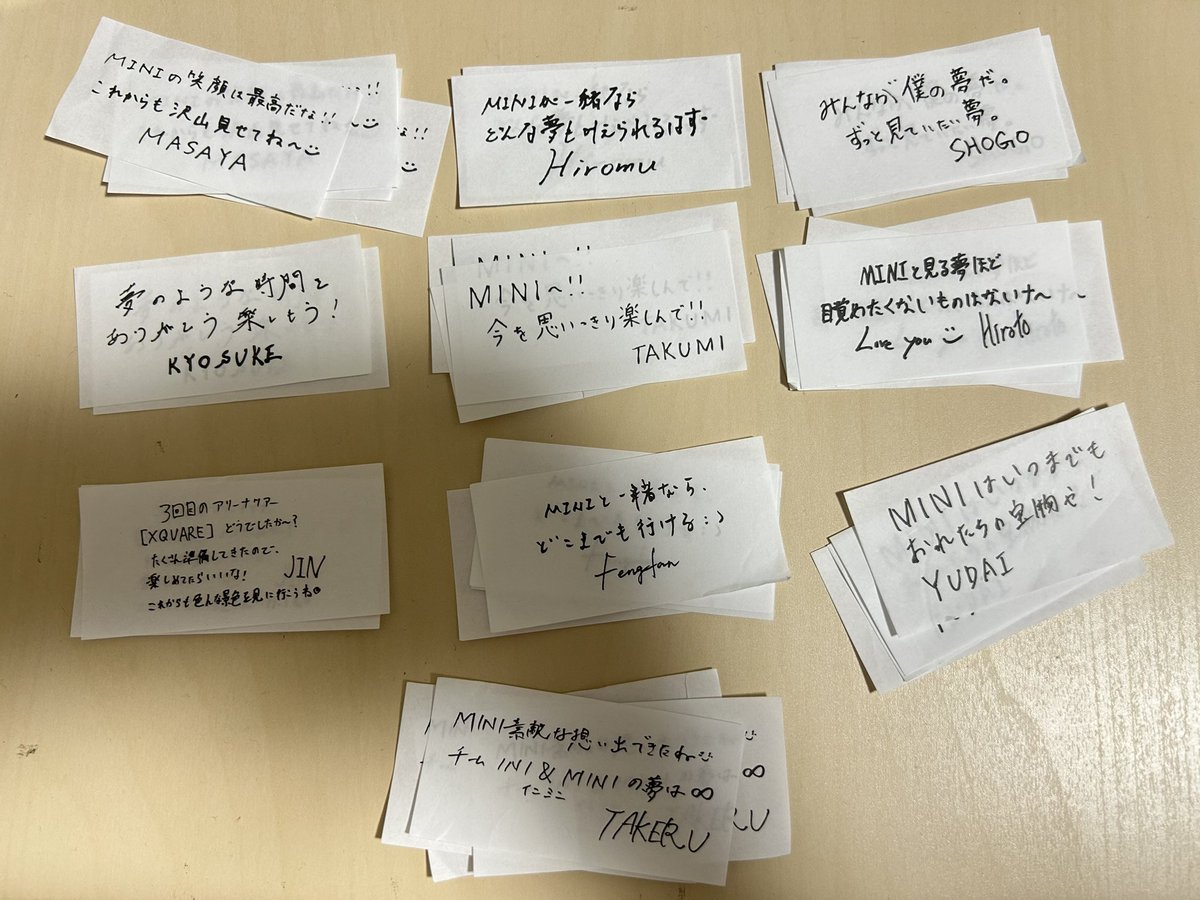 MINIの笑顔は最高だな!!
これからも沢山見せてね〜
MASAYA
MINIが一緒なら
どんな夢も叶えられるはず
Hiromu
みんなが僕の夢だ。
ずっと見ていたい夢。
SHOGO
夢のような時間を
ありがとう楽しもう!
KYOSUKE
MINI〜!!
今を思いっきり楽しんで!!
TAKUMI
MINIと見る夢ほど
目覚めたくないものはないナ〜
Love you Hiroto
3回目のアリーナツアー
[XQUARE] どうでしたか〜?
たくさん準備してきたので、
楽しめてたらいいな!
JIN
これからも色んな景色を見に行こうね
MINIと一緒なら、
どこまでも行ける:)
Fengfan
MINIはいつまでも
おれたちの宝物や!
YUDAI
MINI素敵な想い出できたね
チームINI&MINIの夢は∞
イニミニ
TAKERU